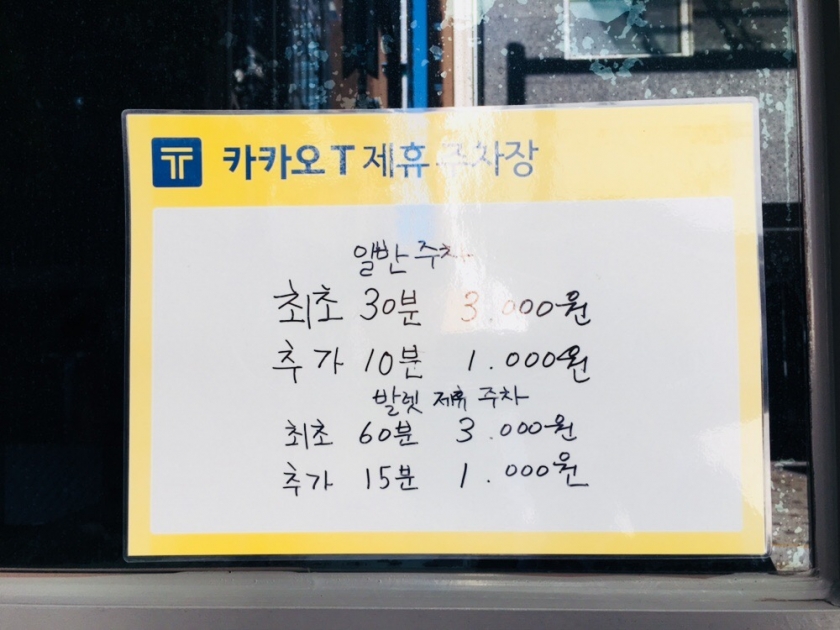 카카오 T 제휴 주차장
일반 주차
최초 30분 3.000원
추가 10분 1.000원
발렛 제휴 주차
최초 60분 3.000원
추가 15분 1.000원